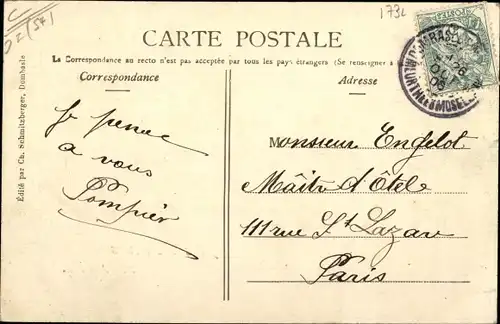 C
D=(54)
1732
CARTE POSTALE
La Correspondance au recto n'est pas acceptée par tous les pays étrangers (Se renseigner à
Correspondance
Adresse
Édité par Ch. Schmitzberger, Dombasle
Je pense
à vous
Pompier
Monsieur Engelot
Maître d'Ôtel
111 rue St Lazare
Paris